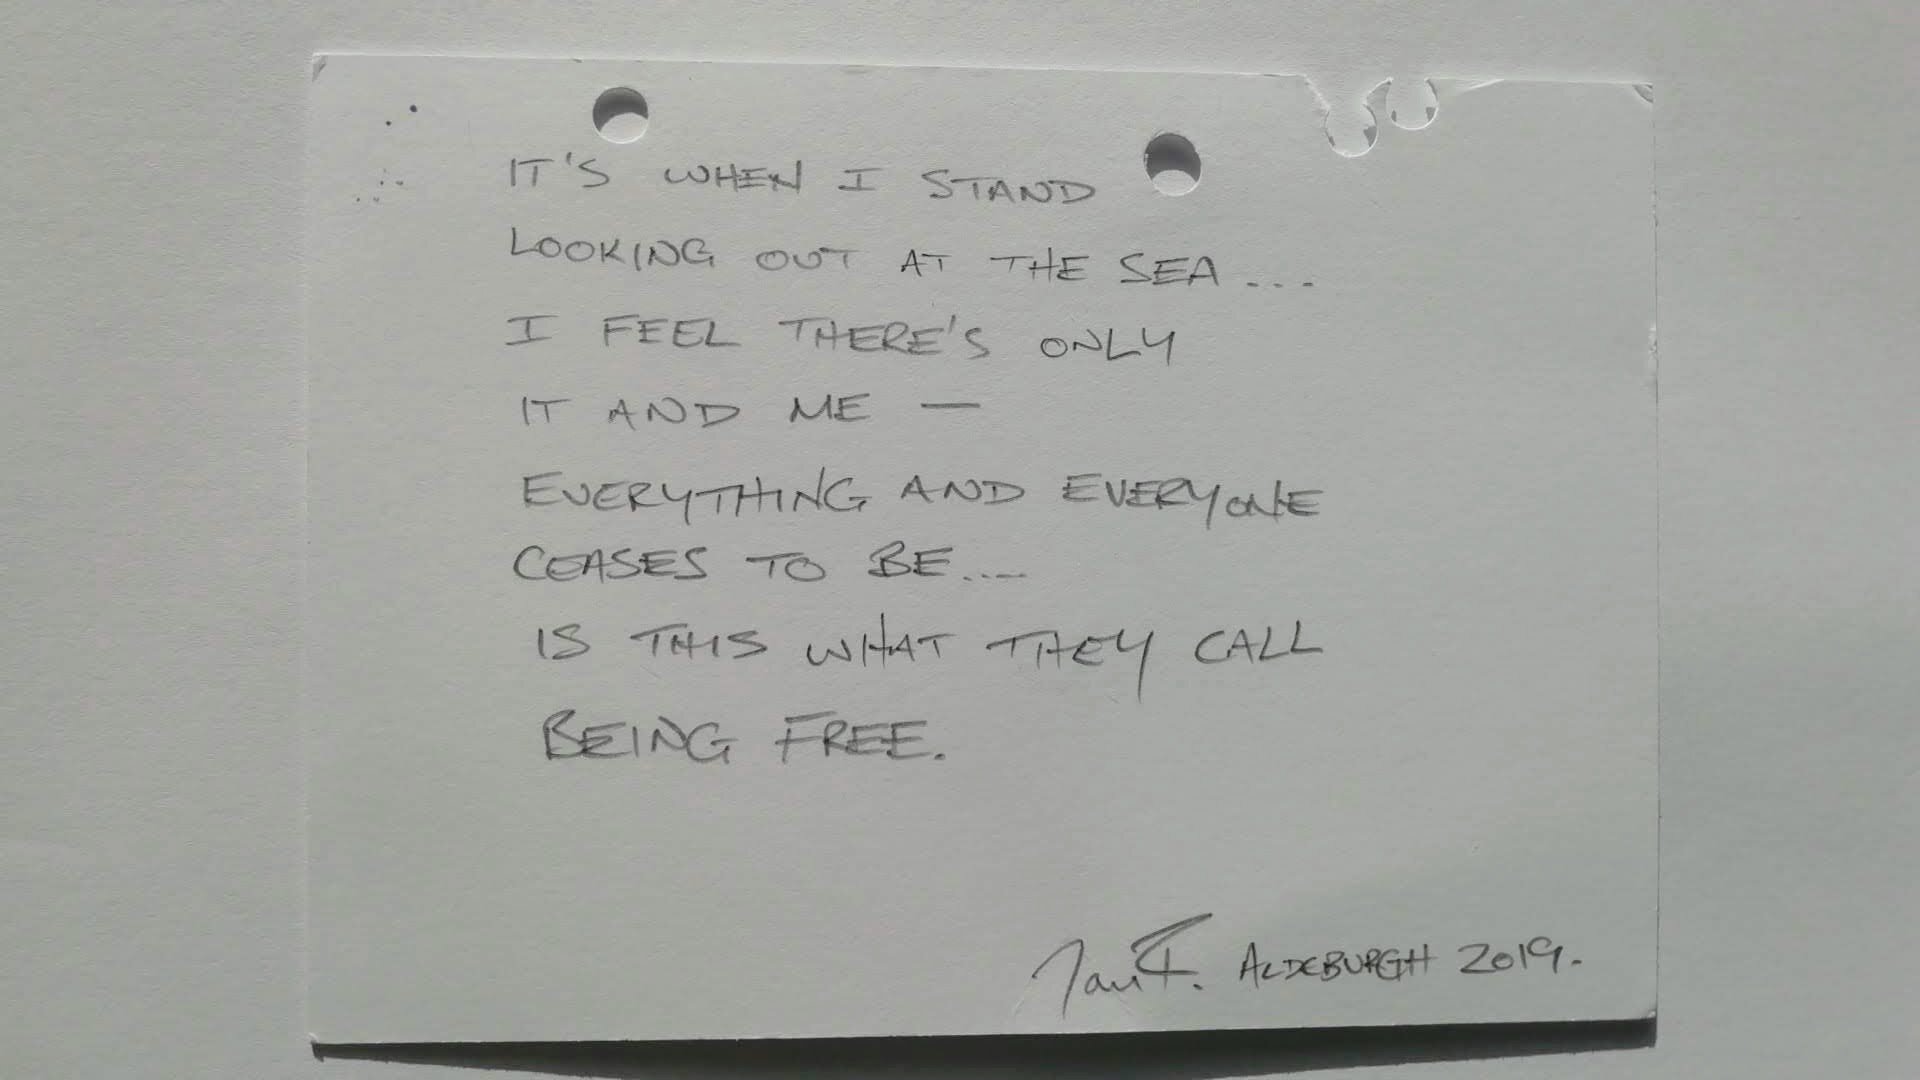 IT'S WHEN I STAND
LOOKING OUT AT THE SEA ...
I FEEL THERE'S ONLY
IT AND ME —
EVERYTHING AND EVERYONE
CEASES TO BE....
IS THIS WHAT THEY CALL
BEING FREE.
ALDEBURGH 2019.